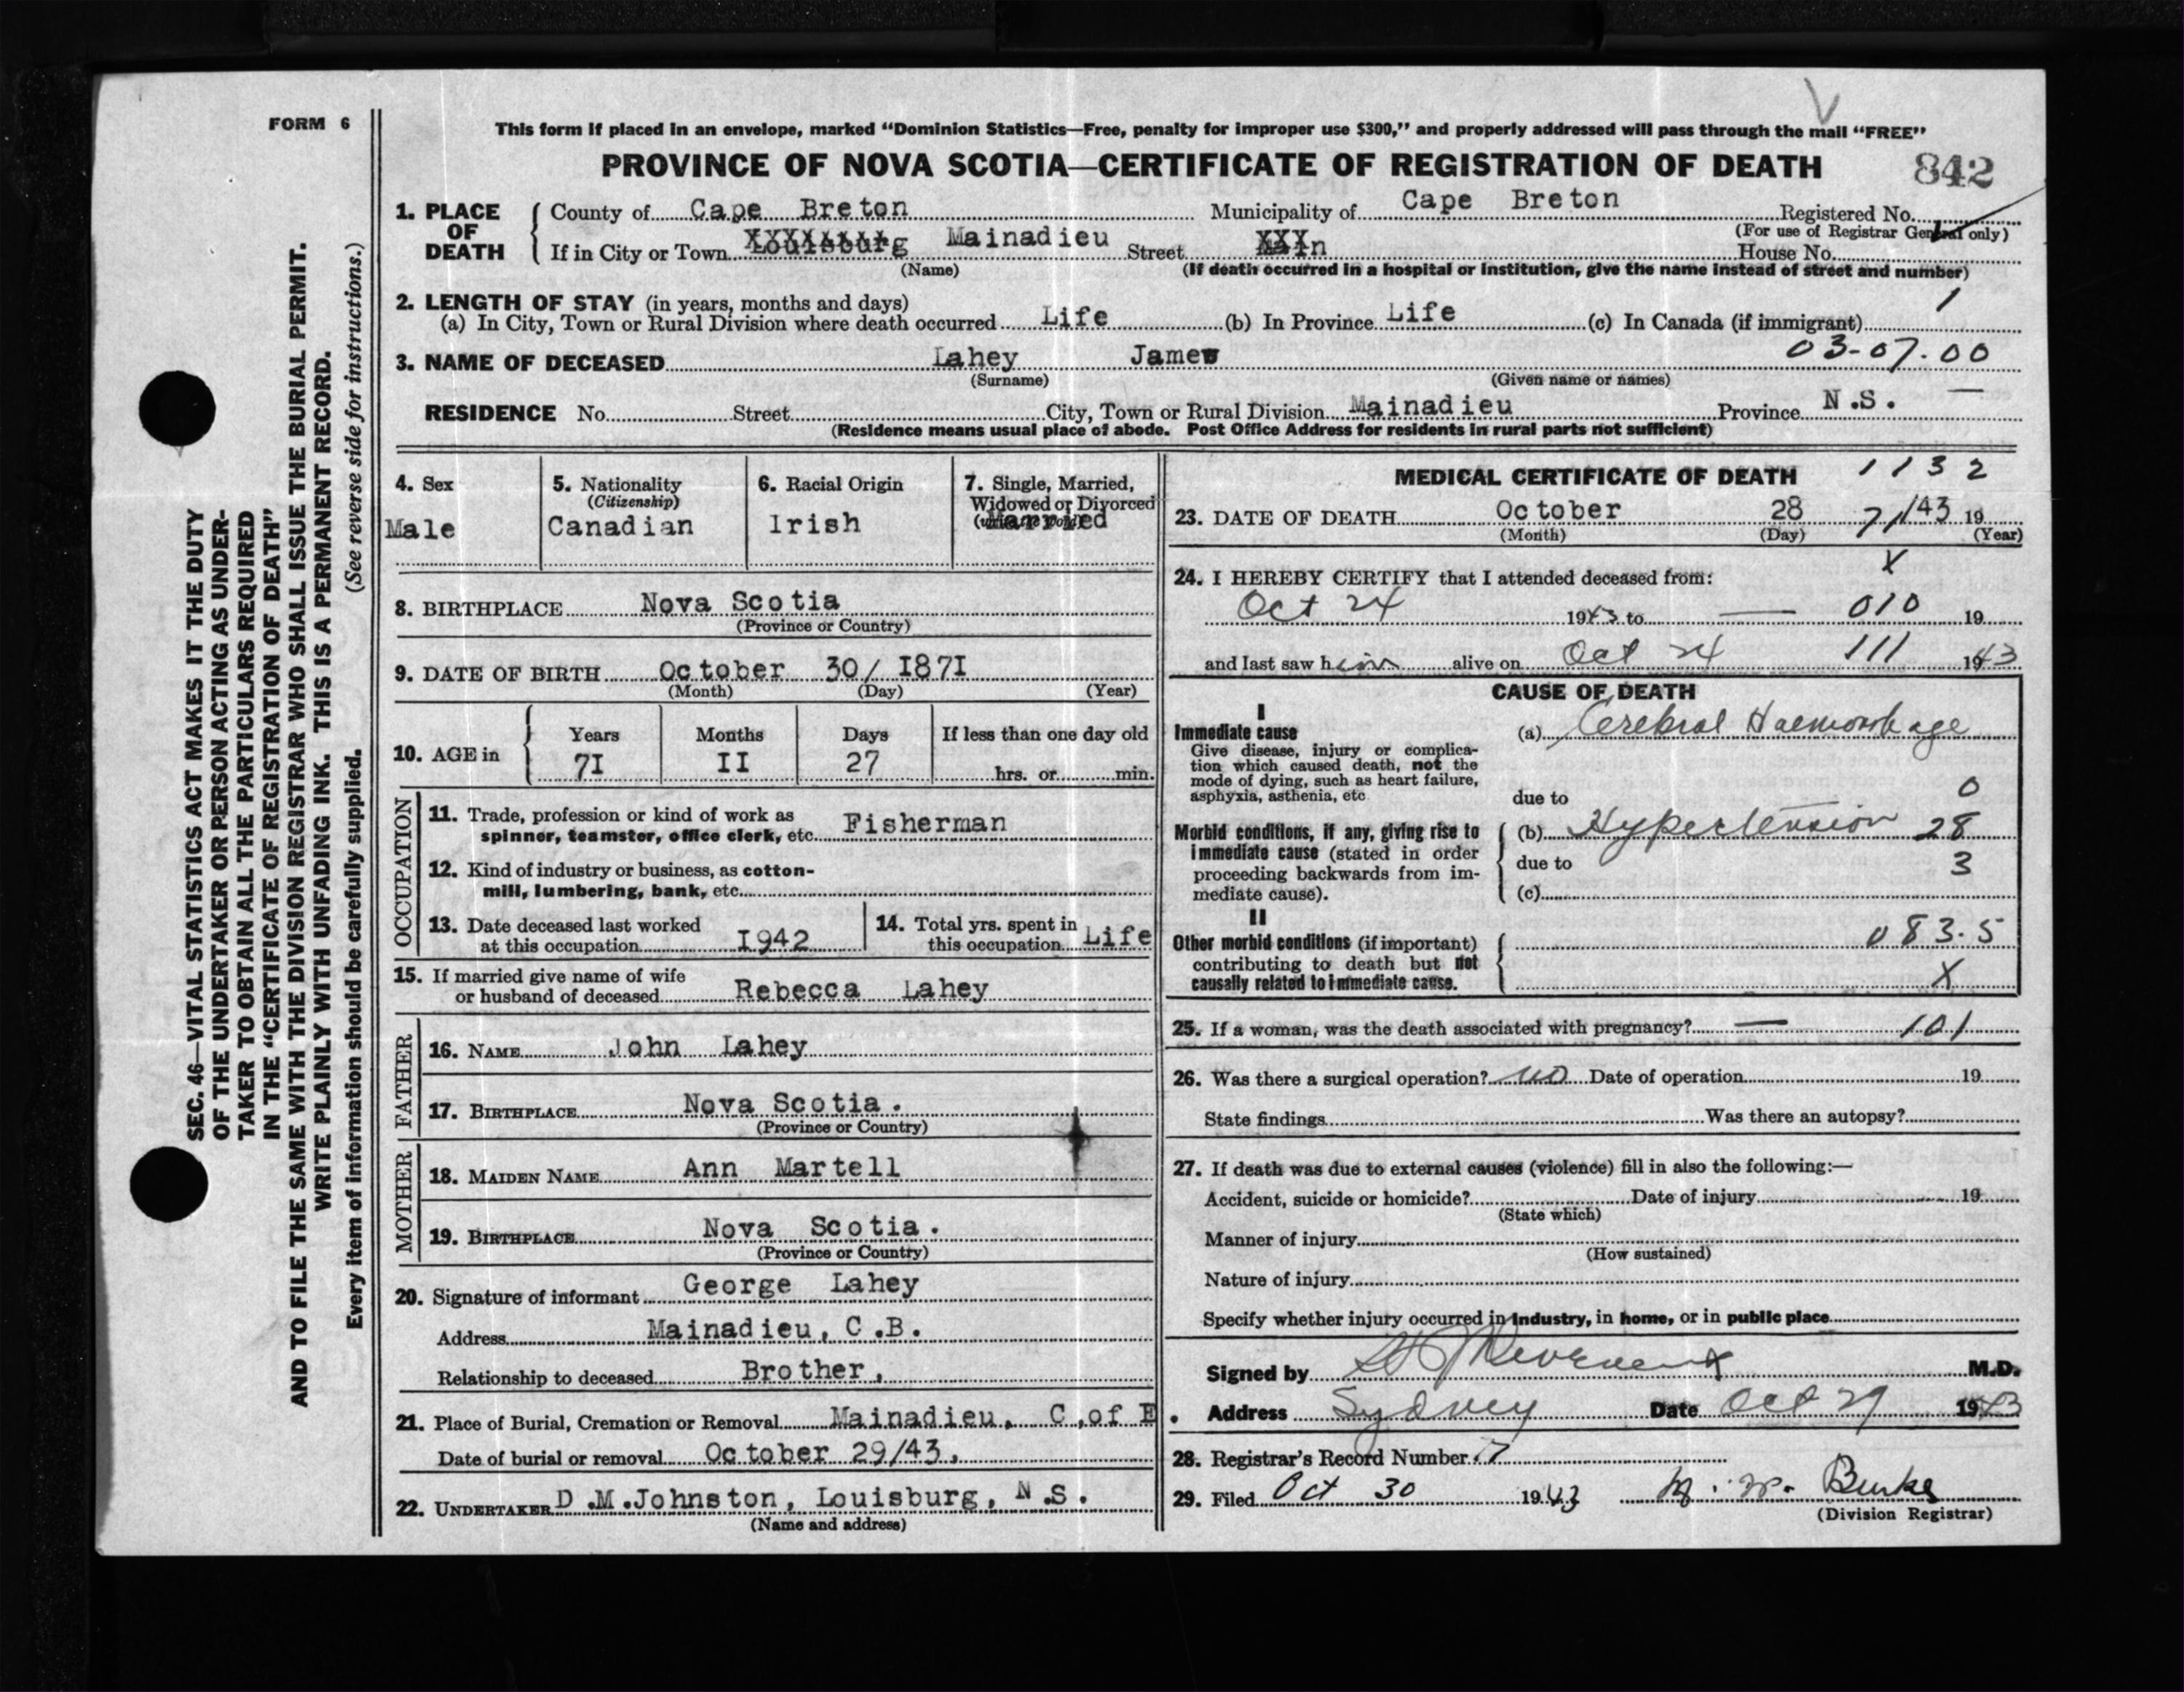 FORM 6
This form if placed in an envelope, marked “Dominion Statistics—Free, penalty for improper use $300,” and properly addressed will pass through the mail “FREE”
PROVINCE OF NOVA SCOTIA—CERTIFICATE OF REGISTRATION OF DEATH 842
1. PLACE OF DEATH
County of Cape Breton Municipality of Cape Breton Registered No.
(For use of Registrar General only)
If in City or Town Louisburg Mainadieu Street Main House No.
(Name) (If death occurred in a hospital or institution, give the name instead of street and number)
2. LENGTH OF STAY (in years, months and days) 1
(a) In City, Town or Rural Division where death occurred Life (b) In Province Life (c) In Canada (if immigrant)
3. NAME OF DECEASED Lahey James 03-07.00
(Surname) (Given name or names)
RESIDENCE No. Street City, Town or Rural Division Mainadieu Province N.S. —
(Residence means usual place of abode. Post Office Address for residents in rural parts not sufficient)
4. Sex
Male
5. Nationality
(Citizenship)
Canadian
6. Racial Origin
Irish
7. Single, Married,
Widowed or Divorced
(write the word)
Married
8. BIRTHPLACE Nova Scotia
(Province or Country)
9. DATE OF BIRTH October 30/ I87I
(Month) (Day) (Year)
10. AGE in
Years Months Days If less than one day old
7I II 27 hrs. or min.
OCCUPATION
11. Trade, profession or kind of work as
spinner, teamster, office clerk, etc. Fisherman
12. Kind of industry or business, as cotton-
mill, lumbering, bank, etc.
13. Date deceased last worked
at this occupation I942
14. Total yrs. spent in
this occupation Life
15. If married give name of wife
or husband of deceased Rebecca Lahey
FATHER
16. NAME John Lahey
17. BIRTHPLACE Nova Scotia.
(Province or Country)
MOTHER
18. MAIDEN NAME Ann Martell
19. BIRTHPLACE Nova Scotia.
(Province or Country)
20. Signature of informant George Lahey
Address Mainadieu, C.B.
Relationship to deceased Brother,
21. Place of Burial, Cremation or Removal Mainadieu, C,of E.
Date of burial or removal October 29/43,
22. UNDERTAKER D.M.Johnston, Louisburg, N.S.
(Name and address)
MEDICAL CERTIFICATE OF DEATH 1132
23. DATE OF DEATH October 28 71/43 19
(Month) (Day) (Year)
X
24. I HEREBY CERTIFY that I attended deceased from:
Oct 24 1943 to — 010 19
and last saw him alive on Oct 24 111 1943
CAUSE OF DEATH
I
Immediate cause (a) Cerebral Haemorrhage
Give disease, injury or complica-
tion which caused death, not the
mode of dying, such as heart failure,
asphyxia, asthenia, etc
due to 0
Morbid conditions, if any, giving rise to (b) Hypertension 28
immediate cause (stated in order
proceeding backwards from im-
mediate cause).
due to 3
(c)
II
Other morbid conditions (if important) 083.5
contributing to death but not
causally related to immediate cause. X
25. If a woman, was the death associated with pregnancy? — 101
26. Was there a surgical operation? no Date of operation 19
State findings Was there an autopsy?
27. If death was due to external causes (violence) fill in also the following:—
Accident, suicide or homicide? Date of injury 19
(State which)
Manner of injury
(How sustained)
Nature of injury
Specify whether injury occurred in industry, in home, or in public place
Signed by M.D.
Address Sydney Date Oct 29 1943
28. Registrar's Record Number 17
29. Filed Oct 30 1943 Burke
(Division Registrar)
SEC. 46—VITAL STATISTICS ACT MAKES IT THE DUTY
OF THE UNDERTAKER OR PERSON ACTING AS UNDER-
TAKER TO OBTAIN ALL THE PARTICULARS REQUIRED
IN THE “CERTIFICATE OF REGISTRATION OF DEATH”
AND TO FILE THE SAME WITH THE DIVISION REGISTRAR WHO SHALL ISSUE THE BURIAL PERMIT.
WRITE PLAINLY WITH UNFADING INK. THIS IS A PERMANENT RECORD.
Every item of information should be carefully supplied. (See reverse side for instructions.)